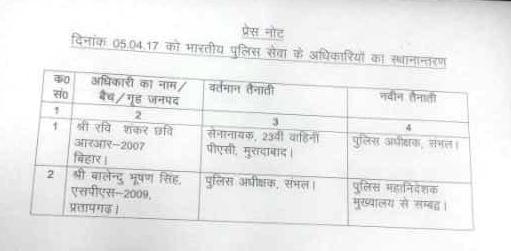 प्रेस नोट
दिनांक 05.04.17 को भारतीय पुलिस सेवा के अधिकारियों का स्थानान्तरण
क० सं० अधिकारी का नाम/ बैच/गृह जनपद वर्तमान तैनाती नवीन तैनाती
1 2 3 4
1 श्री रवि शंकर छवि सेनानायक, 23वीं वाहिनी पुलिस अधीक्षक, संभल।
आरआर–2007 पीएसी, मुरादाबाद।
बिहार।
2 श्री बालेन्दु भूषण सिंह, पुलिस अधीक्षक, संभल। पुलिस महानिदेशक
एसपीएस–2009, मुख्यालय से सम्बद्ध।
प्रतापगढ़।